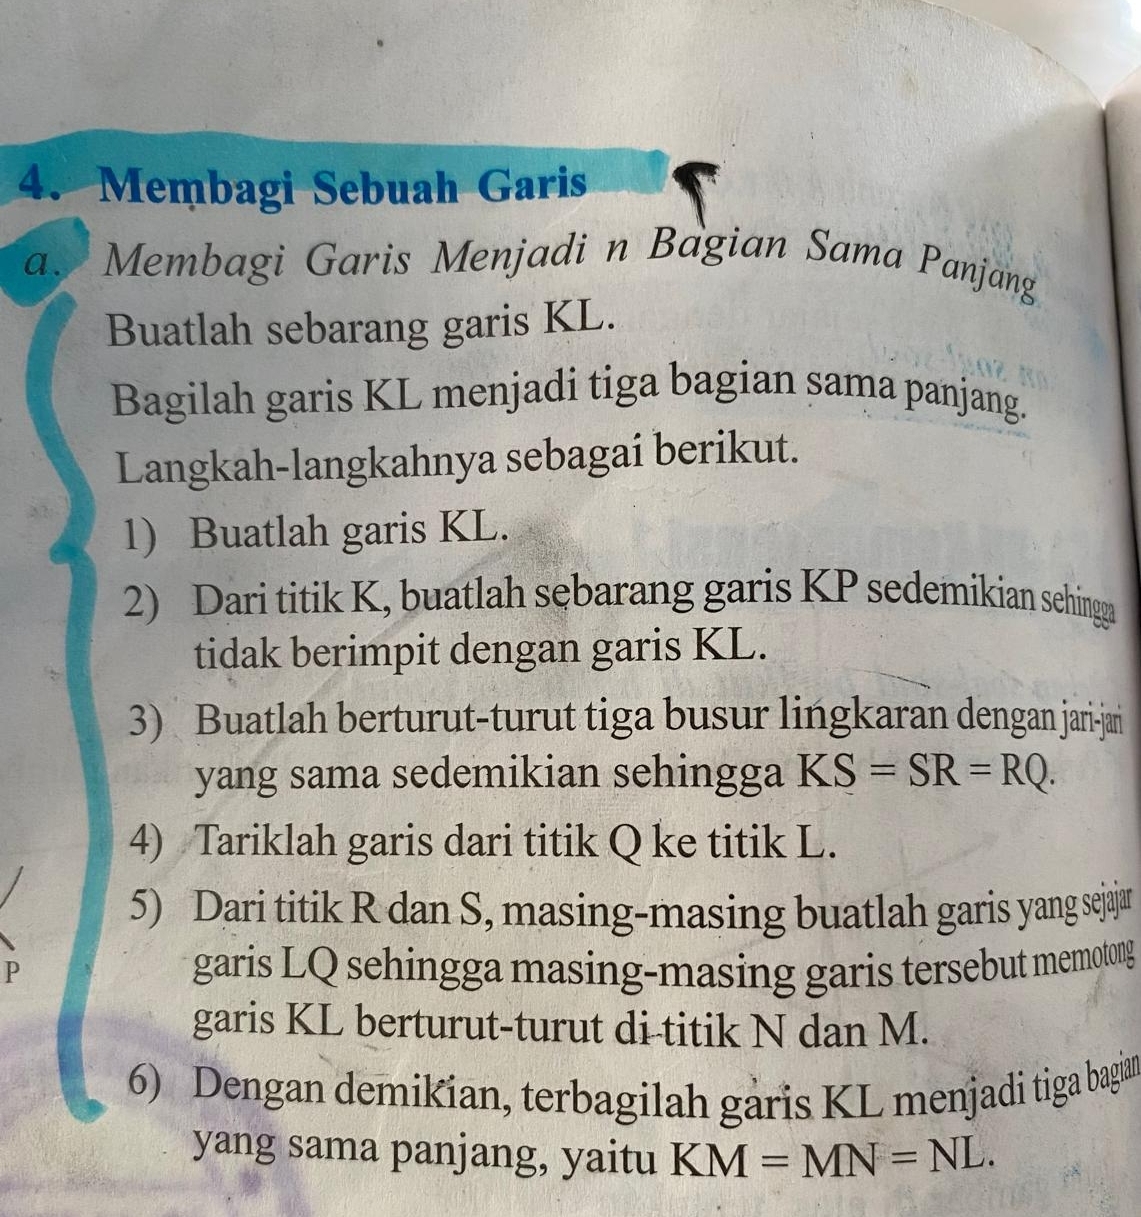 4. Membagi Sebuah Garis
a. Membagi Garis Menjadi n Bagian Sama Panjang
Buatlah sebarang garis KL.
Bagilah garis KL menjadi tiga bagian sama panjang.
Langkah-langkahnya sebagai berikut.
1) Buatlah garis KL.
2) Dari titik K, buatlah sebarang garis KP sedemikian sehingga
tidak berimpit dengan garis KL.
3) Buatlah berturut-turut tiga busur lingkaran dengan jari-jari
yang sama sedemikian sehingga KS = SR = RQ.
4) Tariklah garis dari titik Q ke titik L.
5) Dari titik R dan S, masing-masing buatlah garis yang sejajar
garis LQ sehingga masing-masing garis tersebut memotong
garis KL berturut-turut di titik N dan M.
6) Dengan demikian, terbagilah garis KL menjadi tiga bagian
yang sama panjang, yaitu KM = MN = NL.
P